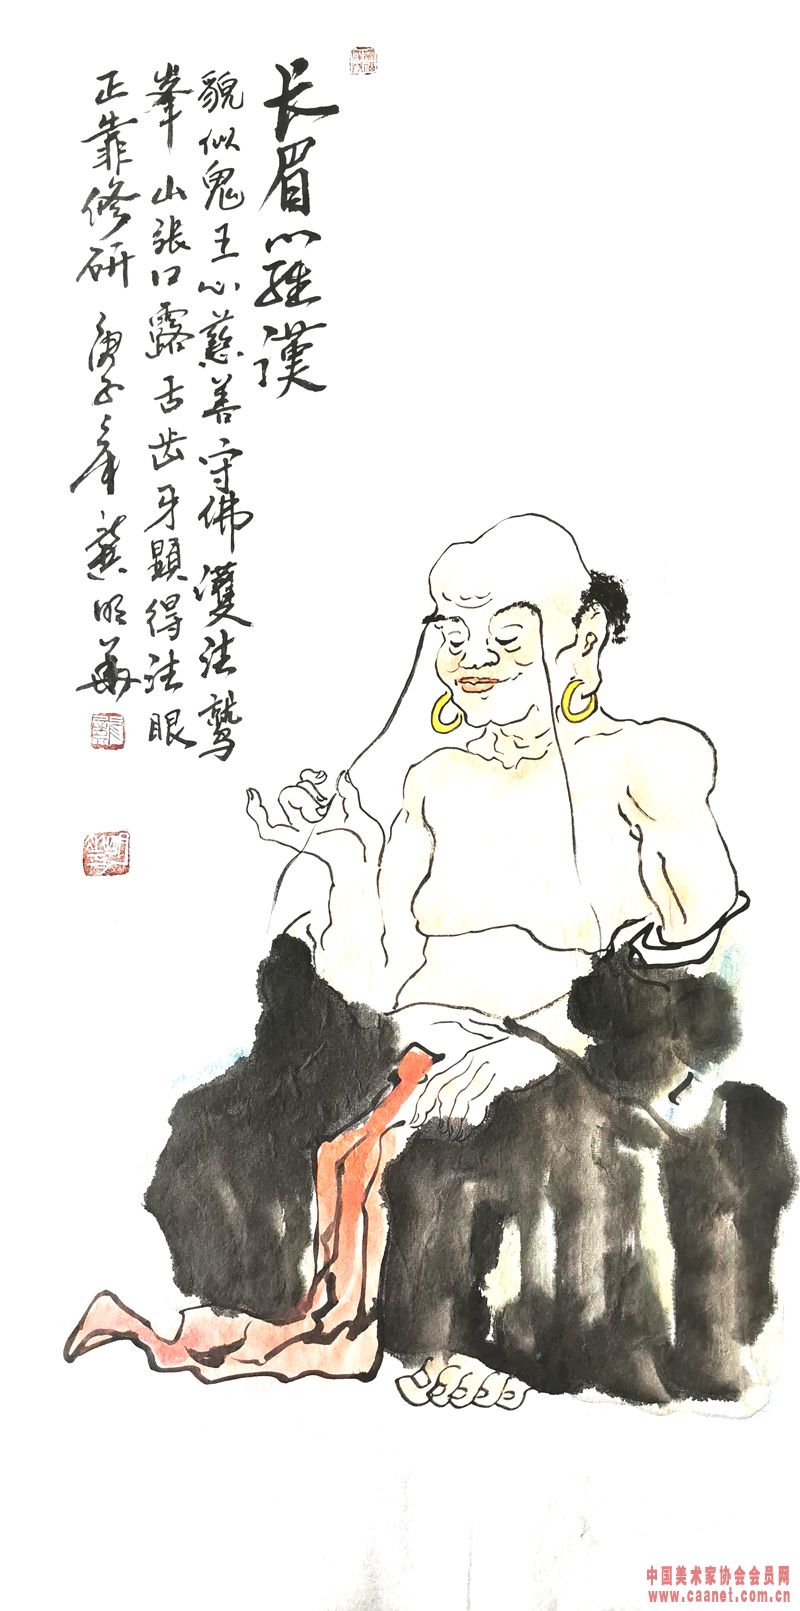 长眉羅漢
貌似鬼王心慈善守佛護法鹫
峯山張口露舌齿牙顯得法眼
正靠修研 庚子年龚明华
中国美术家协会会员网
www.caanet.com.cn